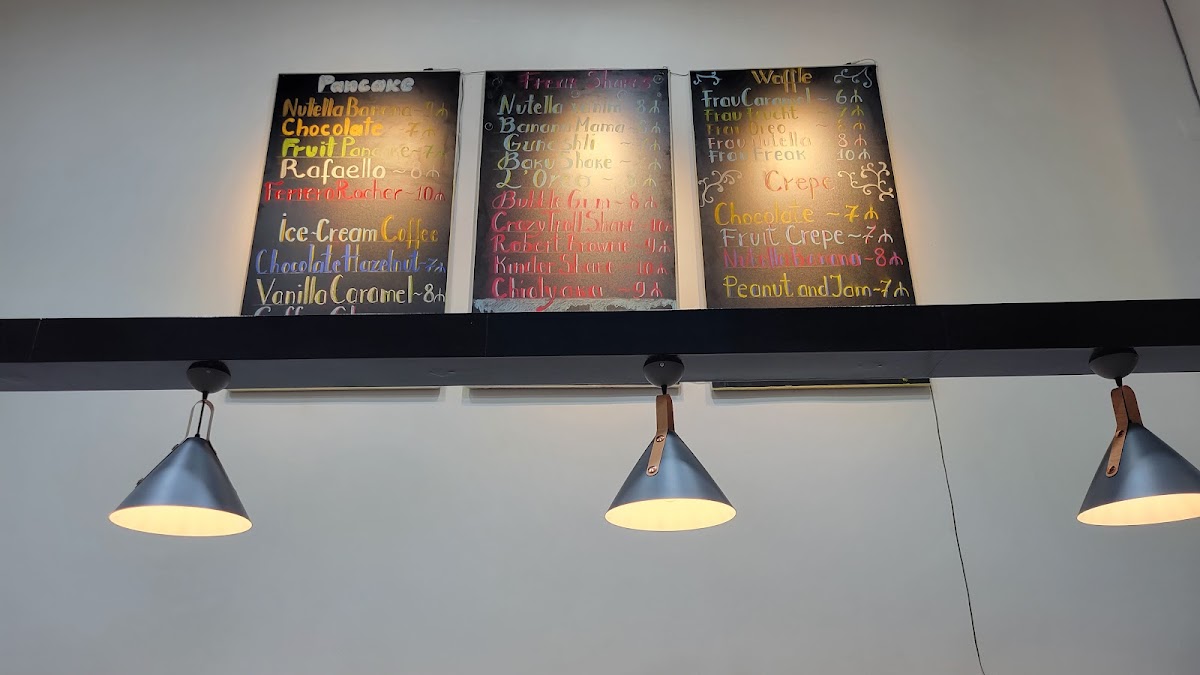 Pancake
Nutella Banana
Chocolate ~ 7 ₼
Fruit Pancake ~ 7
Rafaello ~ 8 ₼
Ferrero Rocher ~ 10 ₼
İce-Cream Coffee
Chocolate Hazelnut ~ 7 ₼
Vanilla Caramel ~ 8 ₼
Freak Shakes
Nutella Vanilla 8 ₼
Banana Mama
Gunashli
Baku Shake
L'Oreo
Bubble Gum ~ 8 ₼
Robert Brownie ~ 9 ₼
Kinder Share ~ 10 ₼
~ 9 ₼
Waffle
Frau Caramel ~ 6 ₼
Frau
Frau Oreo
Frau Nutella 8 ₼
Frau Freak 10 ₼
Crepe
Chocolate ~ 7 ₼
Fruit Crepe ~ 7 ₼
Nutella Banana ~ 8 ₼
Peanut and Jam ~ 7 ₼